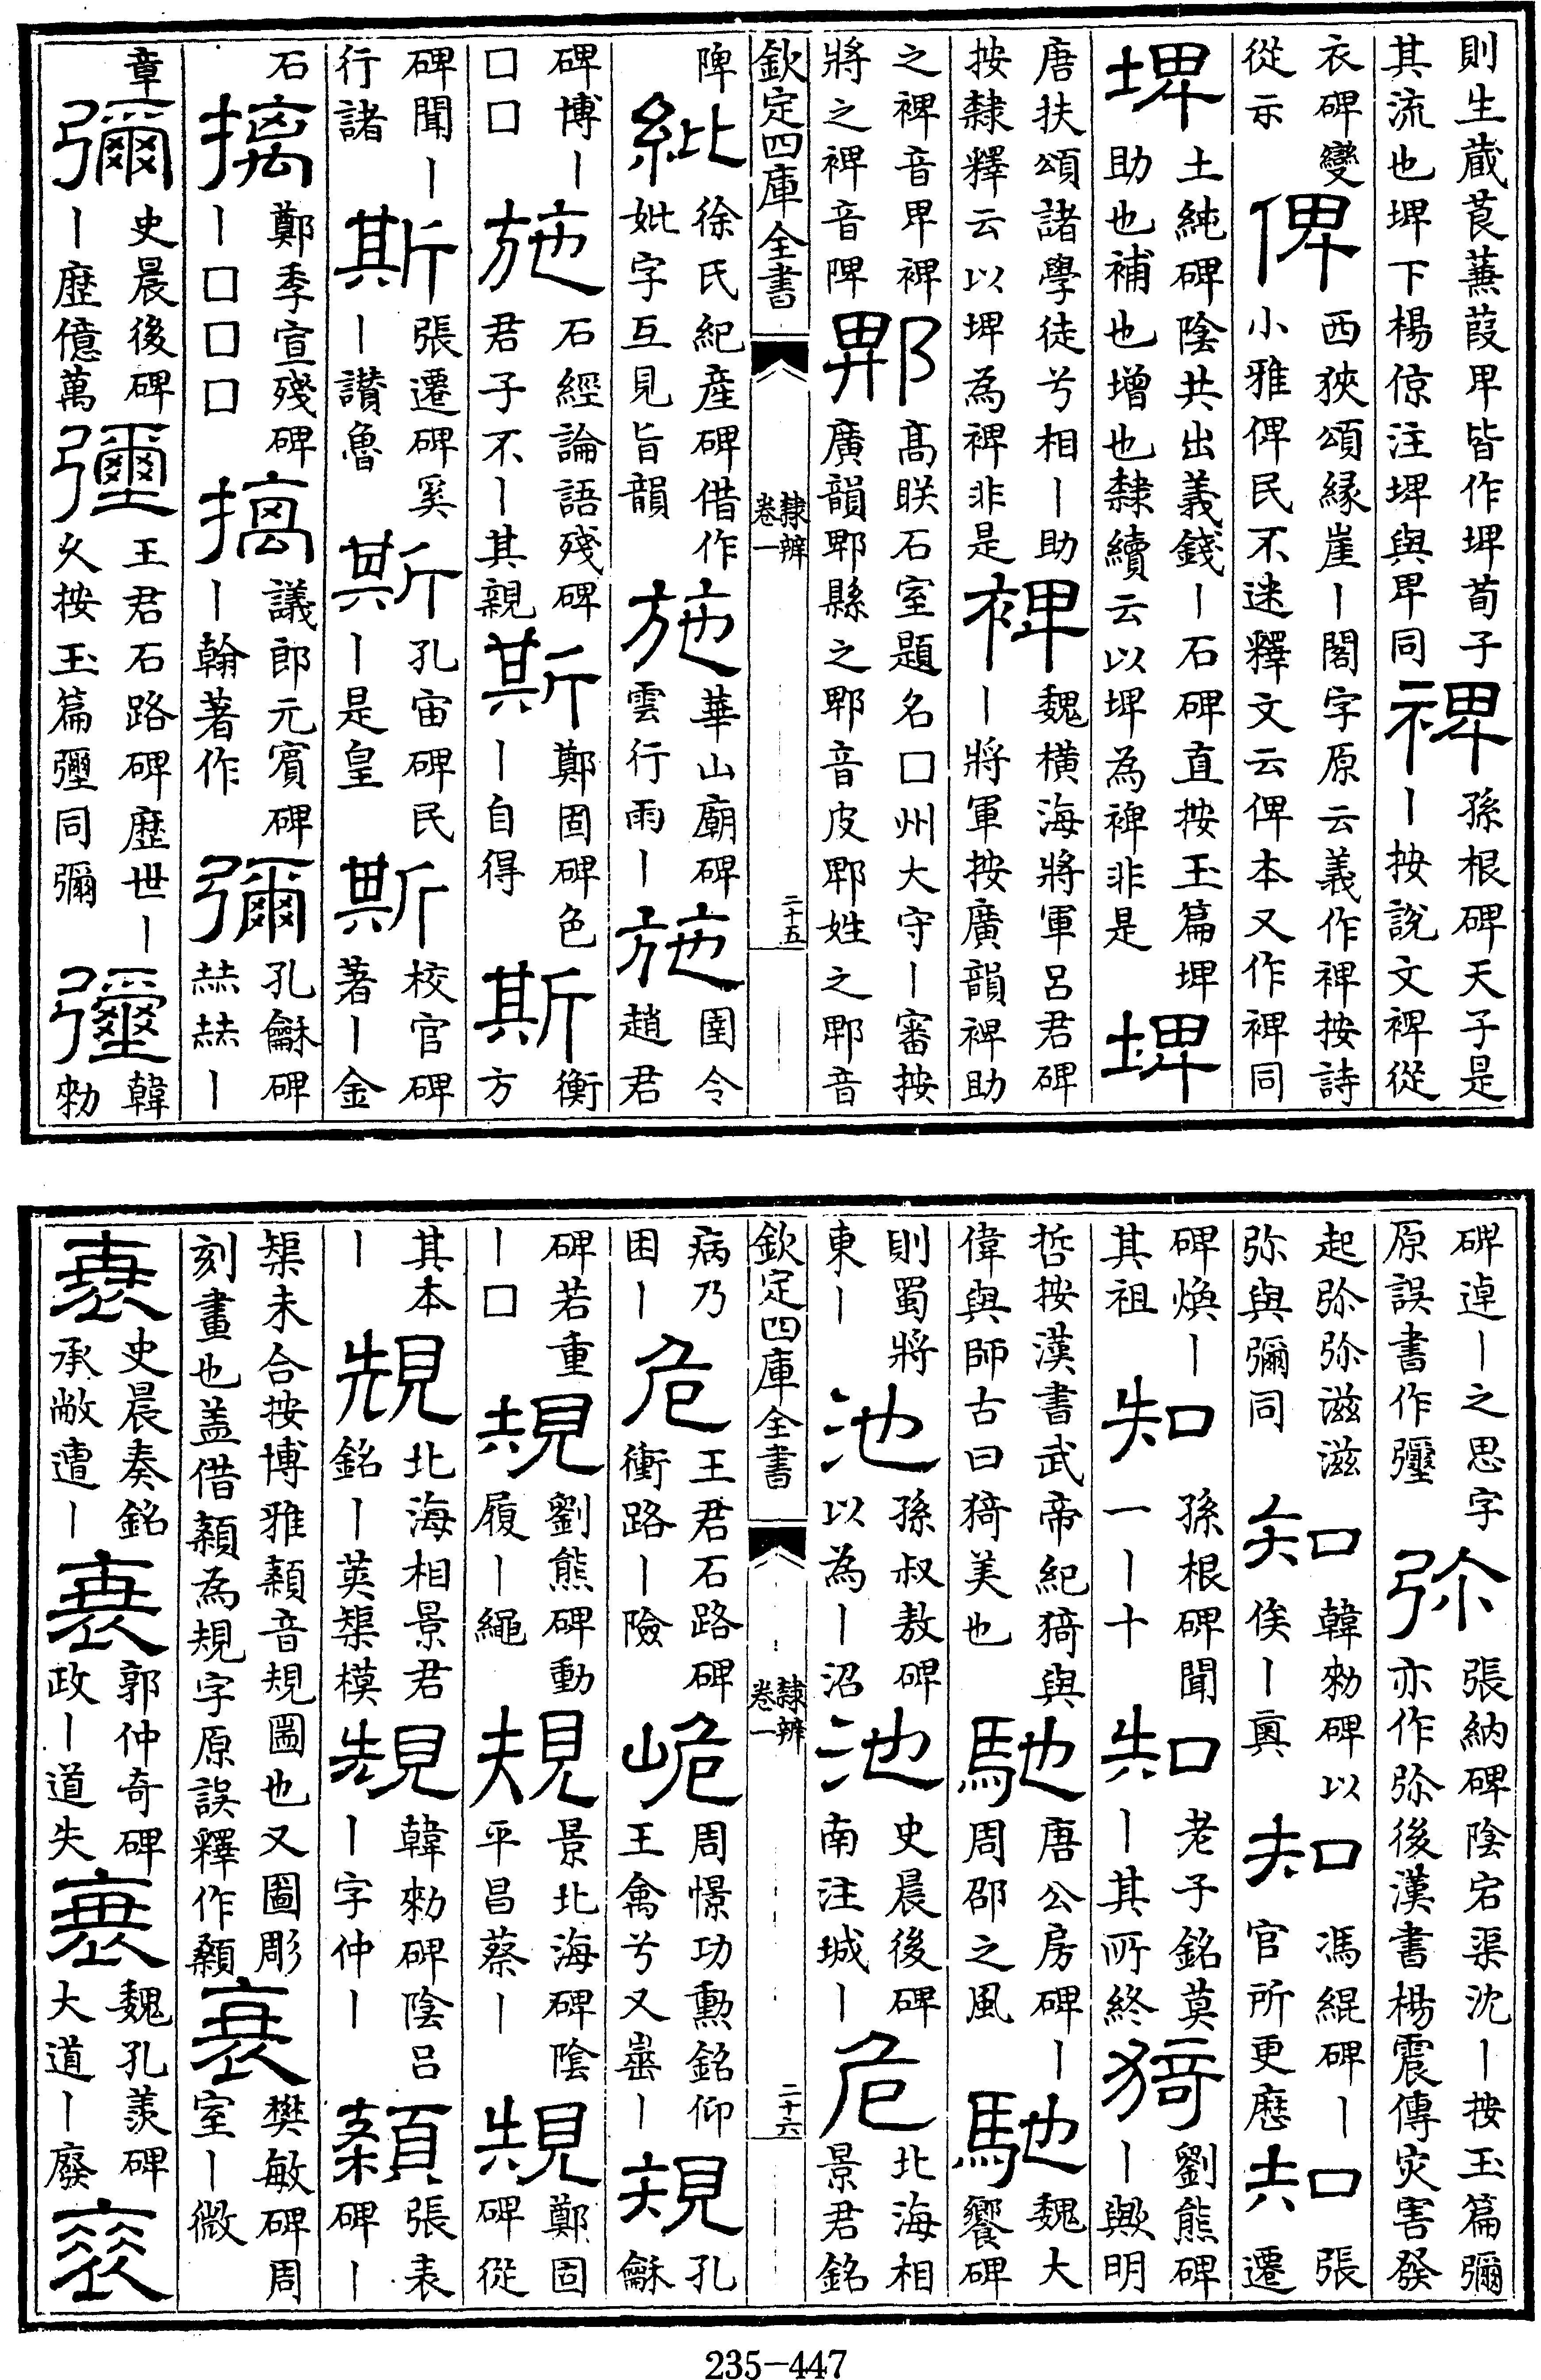 則生蔵莨蒹葭𤰞皆作埤荀子其流也埤下楊倞注埤與𤰞同裨孫根碑天子是丨按說文裨從
衣碑變從示俾西狹頌緣崖丨閣字原云義作裨按詩小雅俾民不迷釋文云俾本又作裨同
埤土純碑陰共出義錢丨石碑直按玉篇埤助也補也增也隸續云以埤為裨非是埤
唐扶頌諸學徒兮相丨助按隸釋云以埤為裨非是裨魏橫海將軍呂君碑丨將軍按廣韻裨助
之裨音𤰞裨將之裨音陴郫高眹石室題名口州大守丨審按廣韻郫縣之郫音皮郫姓之郫音
欽定四庫全書 隸辨 卷一 二十五
陴紕徐氏紀產碑借作妣字互見旨韻施華山廟碑雲行雨丨施圉令趙君
碑博丨口口施石經論語殘碑君子不丨其親斯鄭固碑色丨自得斯衡方
碑聞丨行諸斯張遷碑奚丨讚魯斯孔宙碑民丨是皇斯校官碑著丨金
石摛鄭季宣殘碑丨口口口摛議郎元賓碑丨翰著作彌孔龢碑赫赫丨
章彌史晨後碑丨歷億萬㢱王君石路碑歷世丨乆按玉篇㢱同彌㢱韓勑
碑逴丨之思字原誤書作㢱弥張納碑陰宕渠沈丨按玉篇彌亦作弥後漢書楊震傳災害發
起弥弥滋滋弥與彌同知韓勑碑以俟丨奧知馮緄碑丨官所更歷知張遷
碑煥丨其祖知孫根碑聞一丨十知老子銘莫丨其所終猗劉熊碑丨歟明
哲按漢書武帝紀猗與偉與師古曰猗美也馳唐公房碑丨周邵之風馳魏大饗碑
則蜀將東丨池孫叔敖碑以為丨沼池史晨後碑南注城丨危北海相景君銘
欽定四庫全書 隸辨 卷一 二十六
病乃困丨危王君石路碑衝路丨險峗周憬功勳銘仰王禽兮又崣丨規孔龢
碑若重丨口規劉熊碑動履丨繩規景北海碑陰平昌蔡丨規鄭固碑從
其本丨規北海相景君銘丨英槼模規韓勑碑陰呂丨字仲丨䫌張表碑丨
槼未合按博雅䫌音規圖也又圖彫刻畫也盖借䫌為規字原誤釋作䫌衰樊敏碑周室丨微
衰史晨奏銘承敝遭丨衰郭仲奇碑政丨道失衰魏孔羨碑大道丨廢衰
235-447